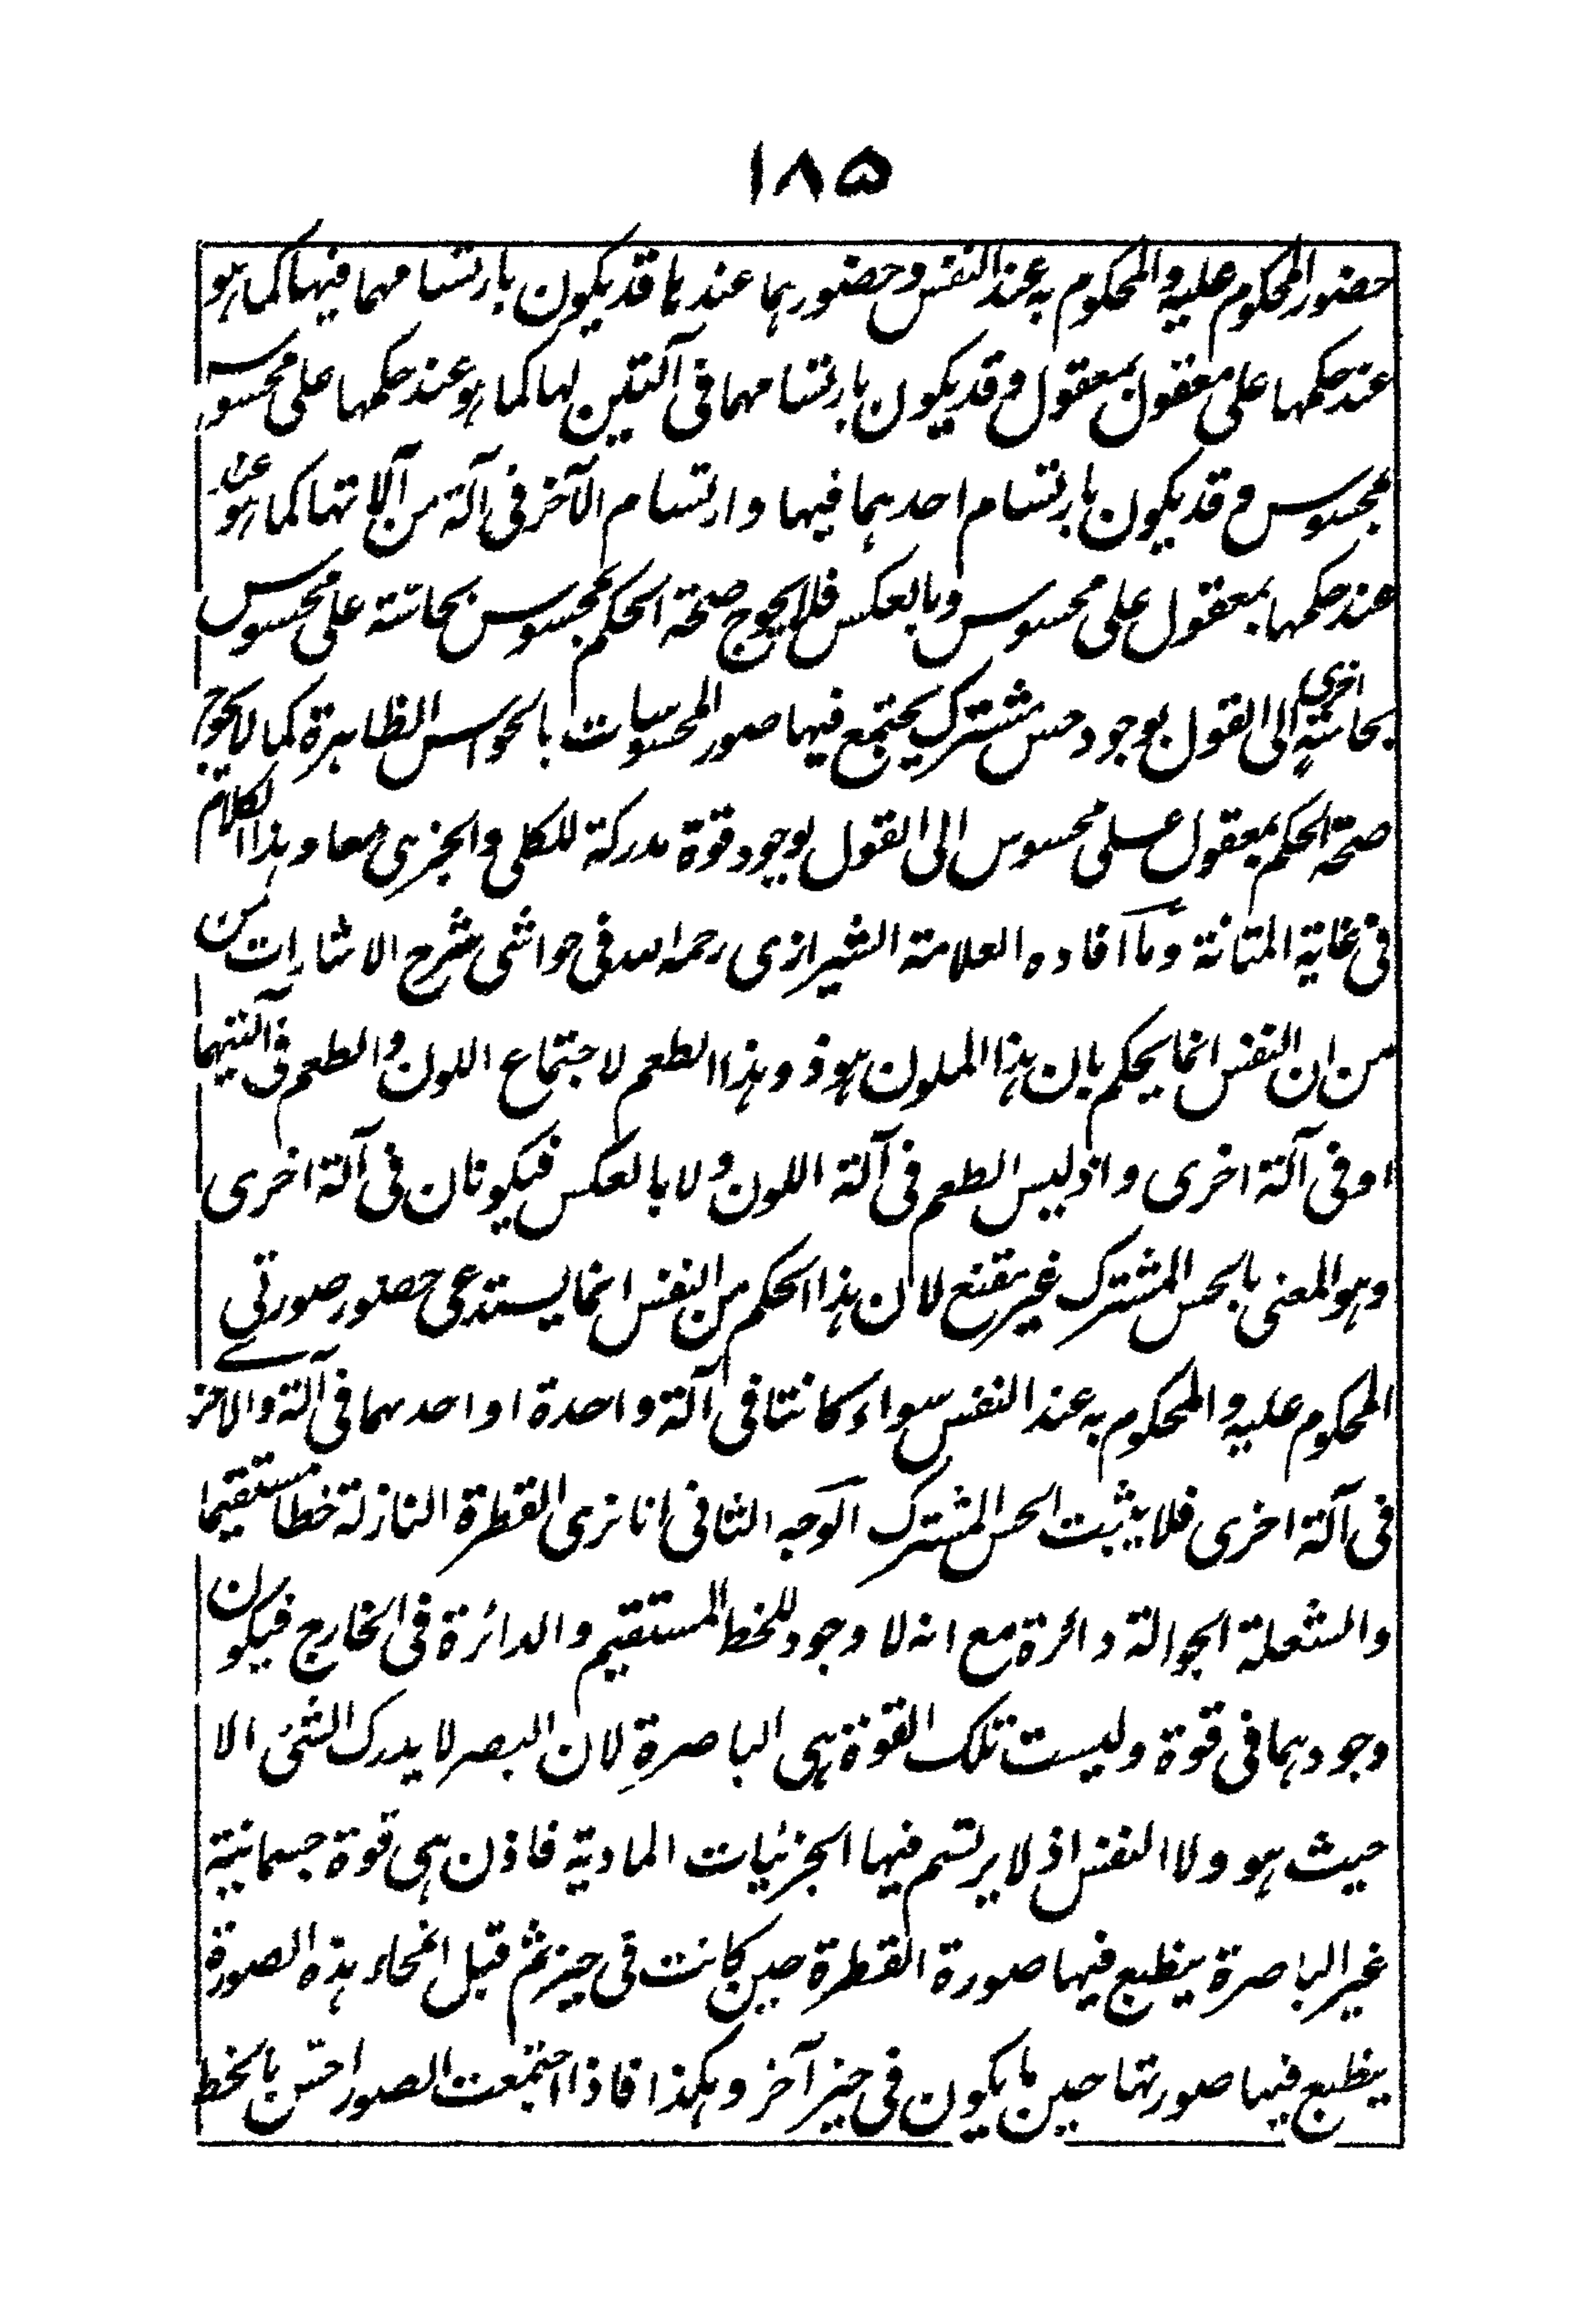 ۱۸۵
حضور المحكوم عليه والمحكوم به عند النفس وحضورهما عندها قد يكون بارتسامهما فيها كما هو
عند حكمها على معقول بمعقول وقد يكون بارتسامهما فى آلتين لها كما هو عند حكمها على محسوس
بمحسوس وقد يكون بارتسام احدهما فيها وارتسام الآخر فى آلة من آلاتها كما هو عند
عند حكمها بمعقول على محسوس وبالعكس فلا يحوج صحة الحكم بمحسوس بحاسة على محسوس
بحاسة اخرى الى القول بوجود حس مشترك يجتمع فيها صور المحسوسات بالحواس الظاهرة كما لا يحوج
صحة الحكم بمعقول على محسوس الى القول بوجود قوة مدركة للكلى والجزئى معا وهذا الكلام
فى غاية المتانة وما افاده العلامة الشيرازى رحمه الله فى حواشى شرح الاشارات من
من ان النفس انما يحكم بان هذا الملون هو ذو هذا الطعم لاجتماع اللون والطعم فى آلتيهما
او فى آلة اخرى واذ ليس الطعم فى آلة اللون ولا بالعكس فيكونان فى آلة اخرى
وهو المعنى بالحس المشترك غير مقنع لان هذا الحكم من النفس انما يستدعى حضور صورتى
المحكوم عليه والمحكوم به عند النفس سواء كانتا فى آلة واحدة او احدهما فى آلة والاخر
فى آلة اخرى فلا يثبت الحس المشترك الوجه الثانى انا نرى القطرة النازلة خطا مستقيما
والشعلة الجوالة دائرة مع انه لا وجود للخط المستقيم والدائرة فى الخارج فيكون
وجودهما فى قوة وليست تلك القوة هى الباصرة لان البصر لا يدرك الشئ الا
حيث هو ولا النفس اذ لا يرتسم فيها الجزئيات المادية فاذن هى قوة جسمانية
غير الباصرة ينطبع فيها صورة القطرة حين كانت فى حيز ثم قبل انمحاء هذه الصورة
ينطبع فيها صورتها حين ما يكون فى حيز آخر وهكذا فاذا اجتمعت الصور احس بالخط